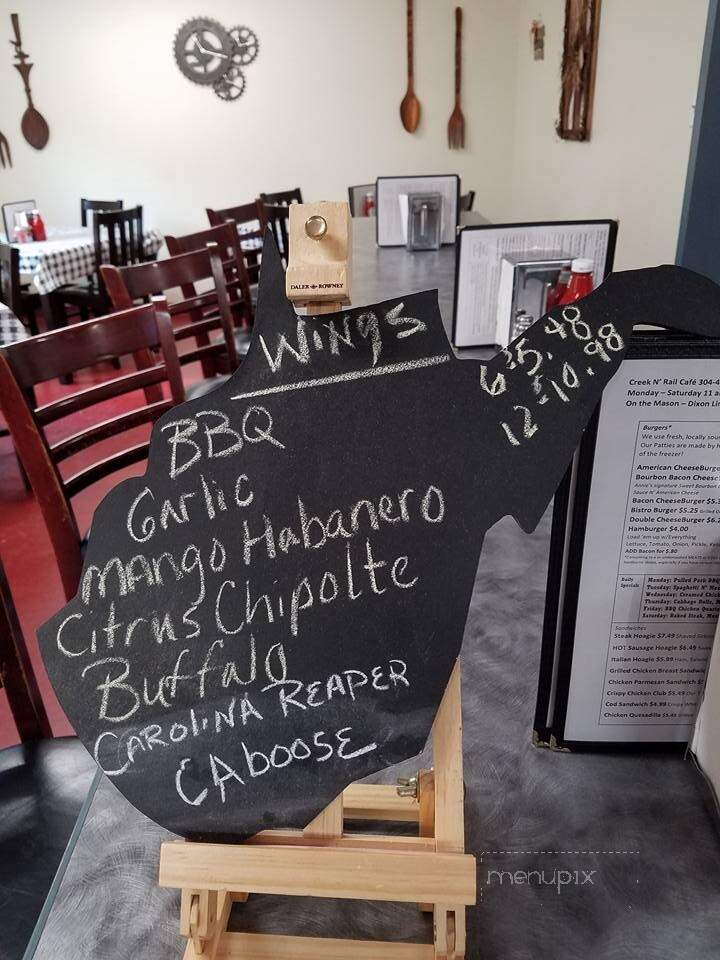 DALER ROWNEY
Wings
6 5.48
12 10.98
BBQ
Garlic
Mango Habanero
Citrus Chipolte
Buffalo
CAROLINA REAPER
CABOOSE
Creek N' Rail Café 304-4
Monday – Saturday 11 a
On the Mason – Dixon Li
Burgers*
We use fresh, locally sou
Our Patties are made by h
of the freezer!
American CheeseBurge
Bourbon Bacon Cheese
Bacon CheeseBurger $5.
Bistro Burger $5.25
Double CheeseBurger $6.
Hamburger $4.00
Load 'em up w/Everything
Lettuce, Tomato, Onion, Pickle,
ADD Bacon for $.80
Daily
Specials
Monday: Pulled Pork BBQ
Tuesday: Spaghetti N' Mea
Wednesday: Creamed Chick
Thursday: Cabbage Rolls,
Friday: BBQ Chicken Quarte
Saturday: Baked Steak,
Sandwiches
Steak Hoagie $7.49 Shaved
HOT Sausage Hoagie $6.49
Italian Hoagie $5.99 Ham,
Grilled Chicken Breast Sandwi
Chicken Parmesan Sandwich
Crispy Chicken Club $5.49
Cod Sandwich $4.99 Crispy
Chicken Quesadilla $5.49
menupix